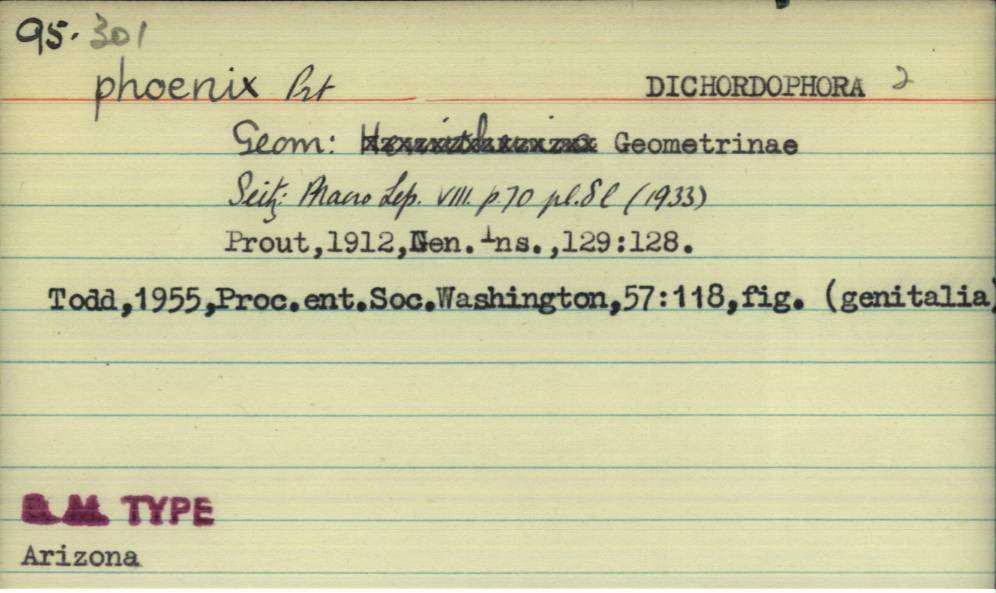 95. 301
phoenix Prt DICHORDOPHORA 2
Geom: Geometrinae
Seitz: Macro Lep. VIII. p.70 pl.8l (1933)
Prout,1912,Gen. Ins.,129:128.
Todd,1955,Proc.ent.Soc.Washington,57:118,fig. (genitalia)
B.M. TYPE
Arizona